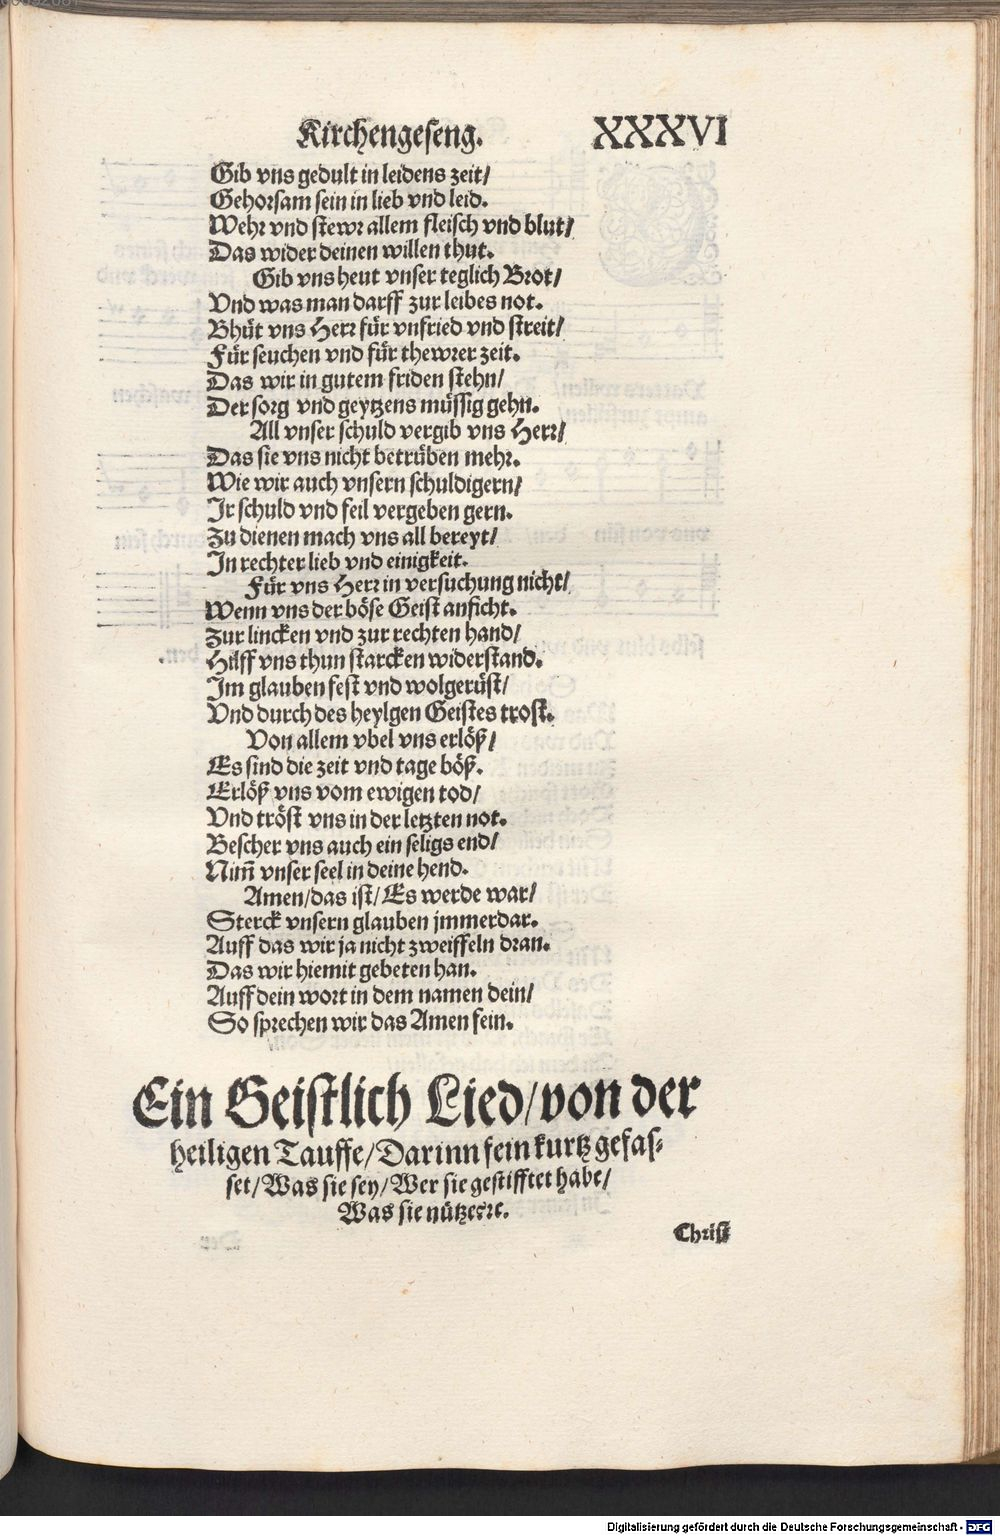 Kirchengeseng. XXXVI
Gib vns gedult in leidens zeit/
Gehorsam sein in lieb vnd leid.
Wehr vnd stewr allem fleisch vnd blut/
Das wider deinen willen thut.
Gib vns heut vnser teglich Brot/
Vnd was man darff zur leibes not.
Bhüt vns Herr für vnfried vnd streit/
Für seuchen vnd für thewrer zeit.
Das wir in gutem friden stehn/
Der sorg vnd geytzens müssig gehn.
All vnser schuld vergib vns Herr/
Das sie vns nicht betrüben mehr.
Wie wir auch vnsern schuldigern/
Ir schuld vnd feil vergeben gern.
Zu dienen mach vns all bereyt/
In rechter lieb vnd einigkeit.
Für vns Herr in versuchung nicht/
Wenn vns der böse Geist anficht.
Zur lincken vnd zur rechten hand/
Hilff vns thun starcken widerstand.
Im glauben fest vnd wolgerüst/
Vnd durch des heylgen Geistes trost.
Von allem vbel vns erlöß/
Es sind die zeit vnd tage böß.
Erlöß vns vom ewigen tod/
Vnd tröst vns in der letzten not.
Bescher vns auch ein seligs end/
Nim̃ vnser seel in deine hend.
Amen/das ist/Es werde war/
Sterck vnsern glauben jmmerdar.
Auff das wir ja nicht zweiffeln dran.
Das wir hiemit gebeten han.
Auff dein wort in dem namen dein/
So sprechen wir das Amen fein.
Ein Geistlich Lied/von der
heiligen Tauffe/Darinn fein kurtz gefas-
set/Was sie sey/Wer sie gestifftet habe/
Was sie nütze etc.
Christ
Digitalisierung gefördert durch die Deutsche Forschungsgemeinschaft - DFG